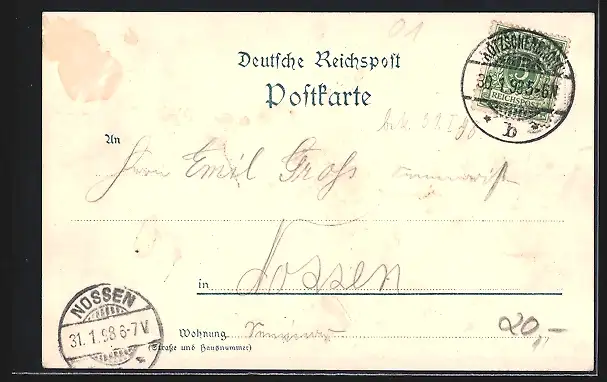 01
Deutsche Reichspost
Postkarte
5
REICHSPOST
30.1.98 5-6N
b
An
Herrn Emil Gross
in Nossen
NOSSEN
31.1.98 6-7V
Wohnung
(Straße und Hausnummer)
20,-